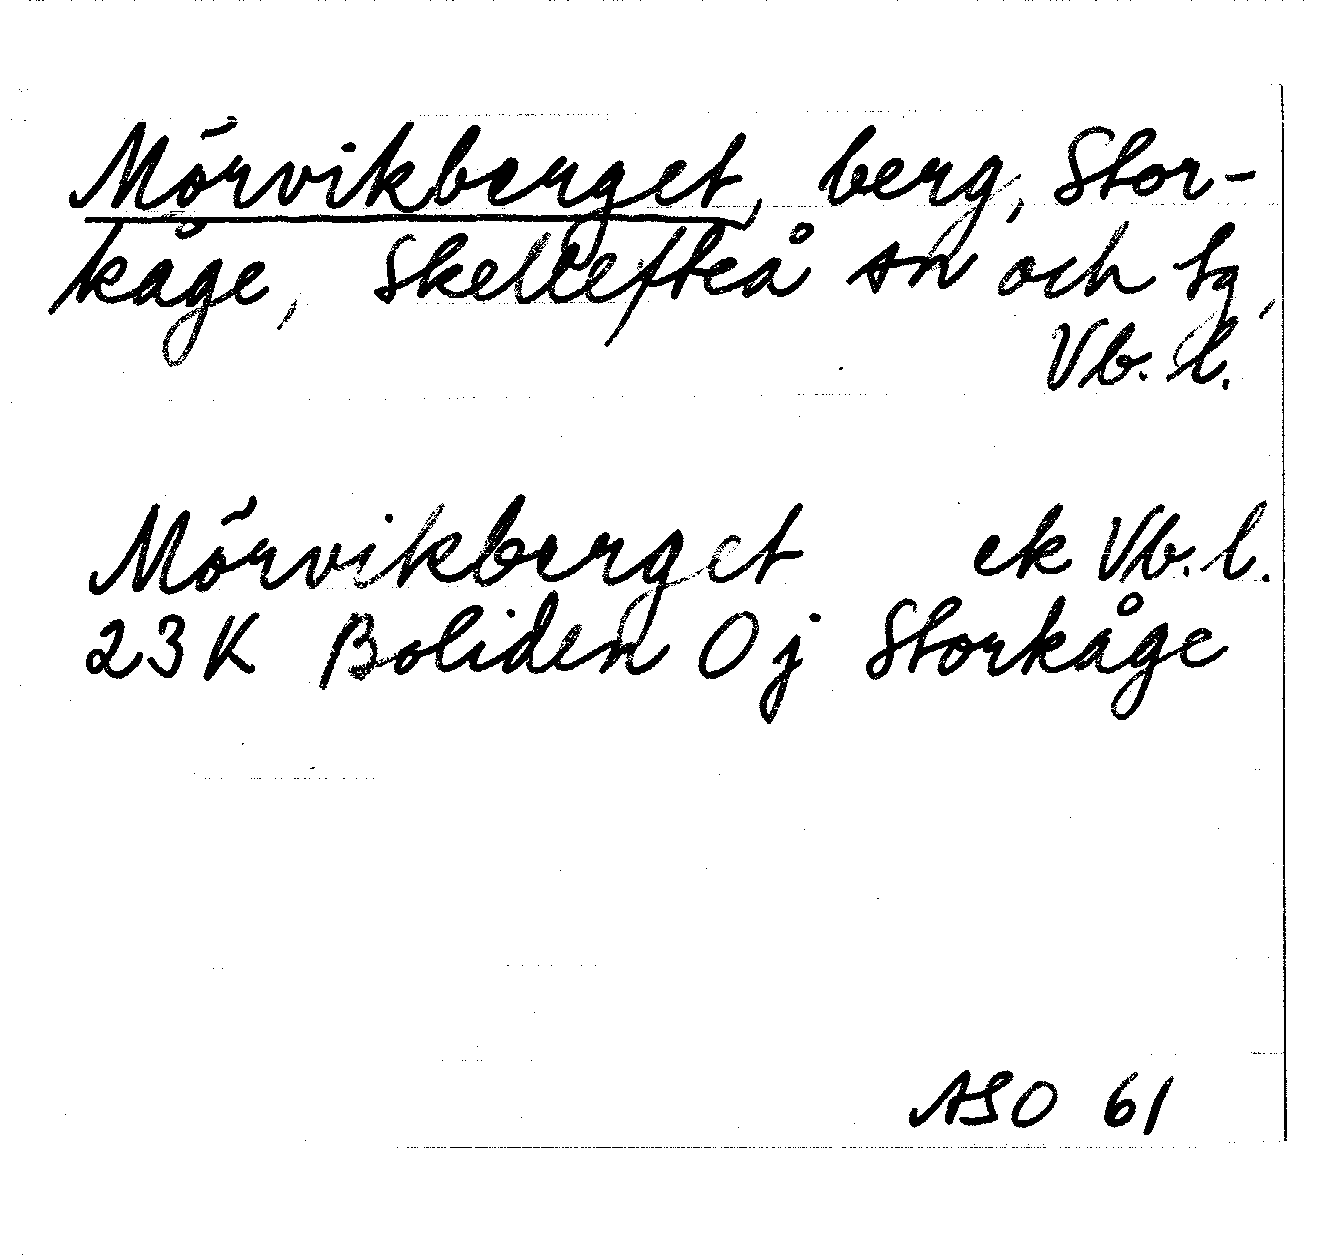 Mörvikberget, berg, Stor-
kåge, Skellefteå sn och tg,
Vb. l.
Mörvikberget ek Vb. l.
23K Boliden 0j Storkåge
ASO 61